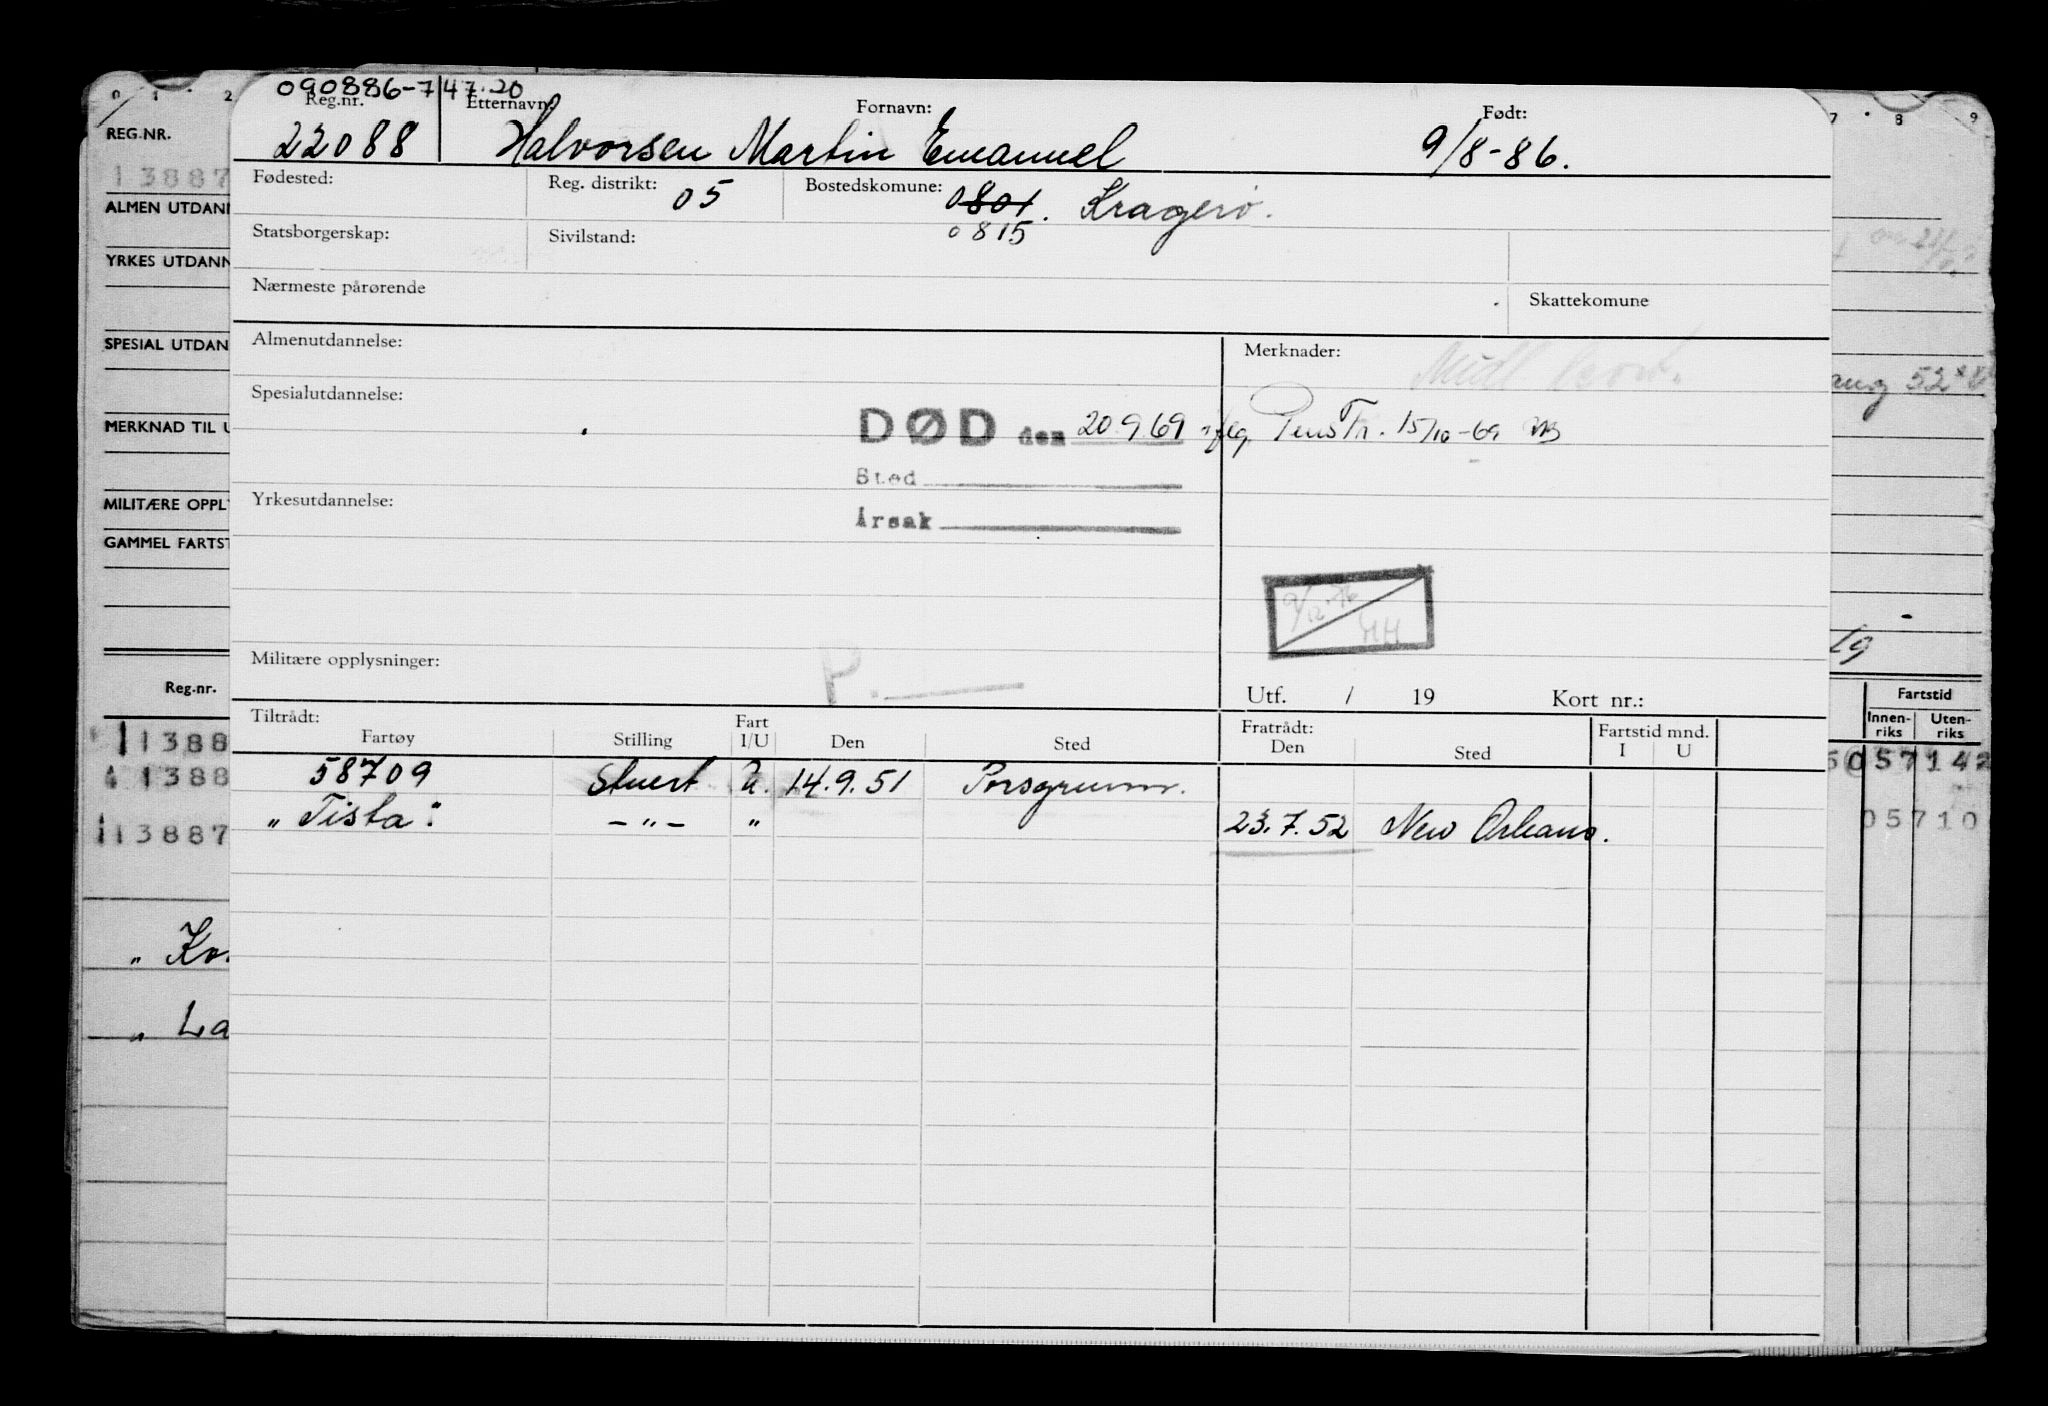 090886-747.20
Reg.nr. Etternavn: Fornavn: Født:
22088 Halvorsen Martin Emanuel 9/8-86.
Fødested: Reg. distrikt: 05 Bostedskomune: 0801. Kragerø.
Statsborgerskap: Sivilstand: 0815
Nærmeste pårørende Skattekomune
Almenutdannelse: Merknader: Midl. kort.
Spesialutdannelse:
DØD den 20.9.69 iflg. PensTr. 15/10-69
Sted
Yrkesutdannelse: Årsak
9/12-76
HH
Militære opplysninger: P.
Utf. / 19 Kort nr.:
Tiltrådt: Fart Fratrådt: Fartstid mnd.
Fartøy Stilling I/U Den Sted Den Sted I U
58709 Stuert U. 14.9.51 Porsgrunn.
"Tista". -"- " 23.7.52 New Orleans.
0 1 2
REG.NR.
13887
ALMEN UTDANN
YRKES UTDANN
SPESIAL UTDAN
MERKNAD TIL U
MILITÆRE OPPL
GAMMEL FARTST
Reg.nr.
11388
11388
113887
" Ko
" La
7 8 9
aug 52
19
Fartstid
Innen-riks Uten-riks
5057142
05710